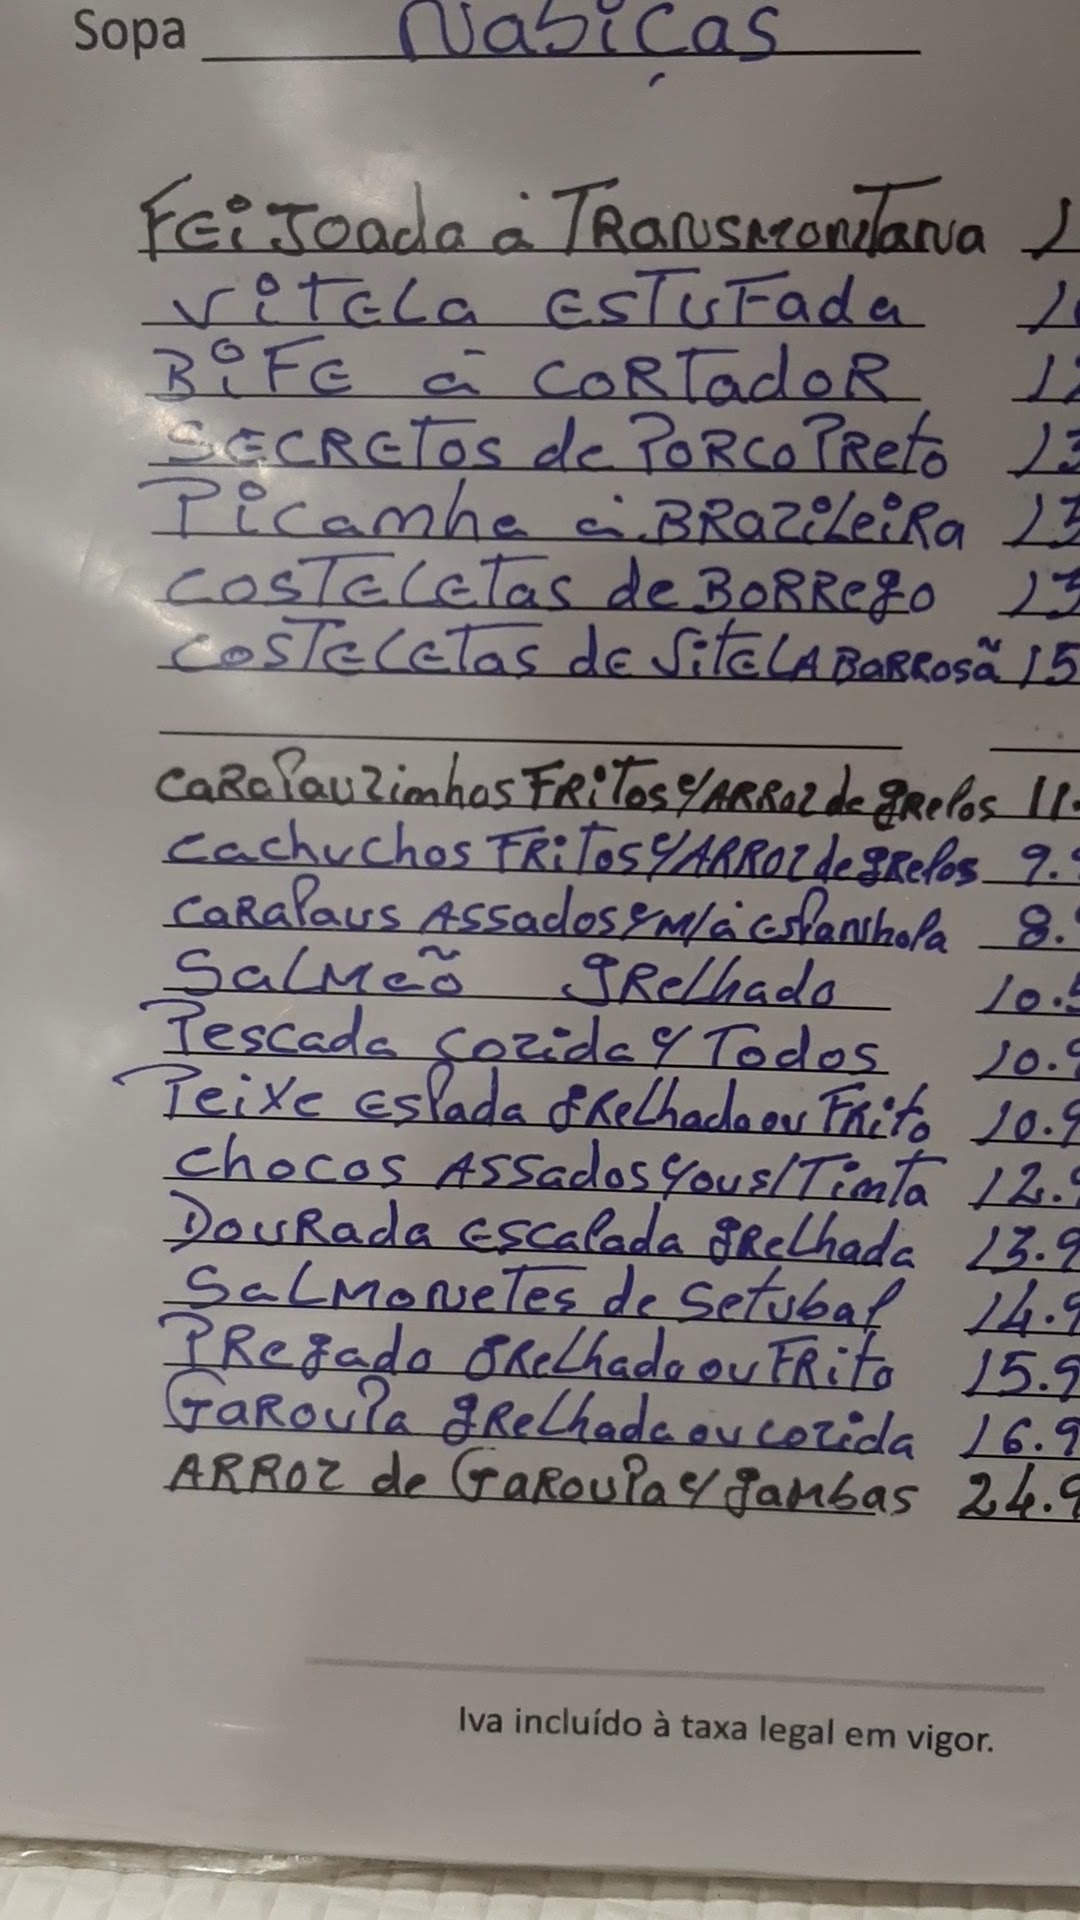 Sopa Nabiças
FEiJoada à TRANSMONTANA 1
ViTELA ESTUFADA 1
BiFE à CORTADOR 12
SECRETOS de PORCO PRETO 13
Picamha à BRAZiLEiRA 13
COSTELETAS de BORREgo 13
COSTELETAS dE ViTELA BARROSÃ 15
CARAPAUZimhos FRiTOS C/ARROZ de gRELOS 11.
Cachuchos FRiTOS C/ARROZ de gRELOS 9.9
CARAPAUS ASSADOS C/M/à Espanhola 8.9
SALMÃO gRelhado 10.5
Pescada Cozida C/ Todos 10.9
Peixe Espada gRelhado ou FRito 10.9
Chocos ASSados C/ou S/Timta 12.9
DouRada Escalada gRelhada 13.9
SALMONETES de Setubal 14.9
PRegado gRelhado ou FRito 15.9
GaRoupa gRelhada ou cozida 16.9
ARROZ de GaRoupa C/gambas 24.9
Iva incluído à taxa legal em vigor.